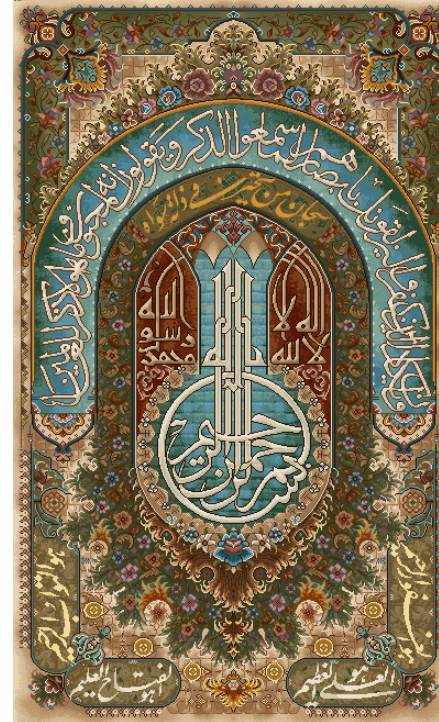 وان يكاد الذين كفروا ليزلقونك بابصارهم لما سمعوا الذكر ويقولون انه لمجنون وما هو الا ذكر للعالمين
سبحان من تحير في ذاته سواه
لا اله الا الله
محمد رسول الله
بسم الله الرحمن الرحيم
هو التواب الرحيم
هو الغفور الرحيم
هو العلي العظيم
هو الفتاح العليم